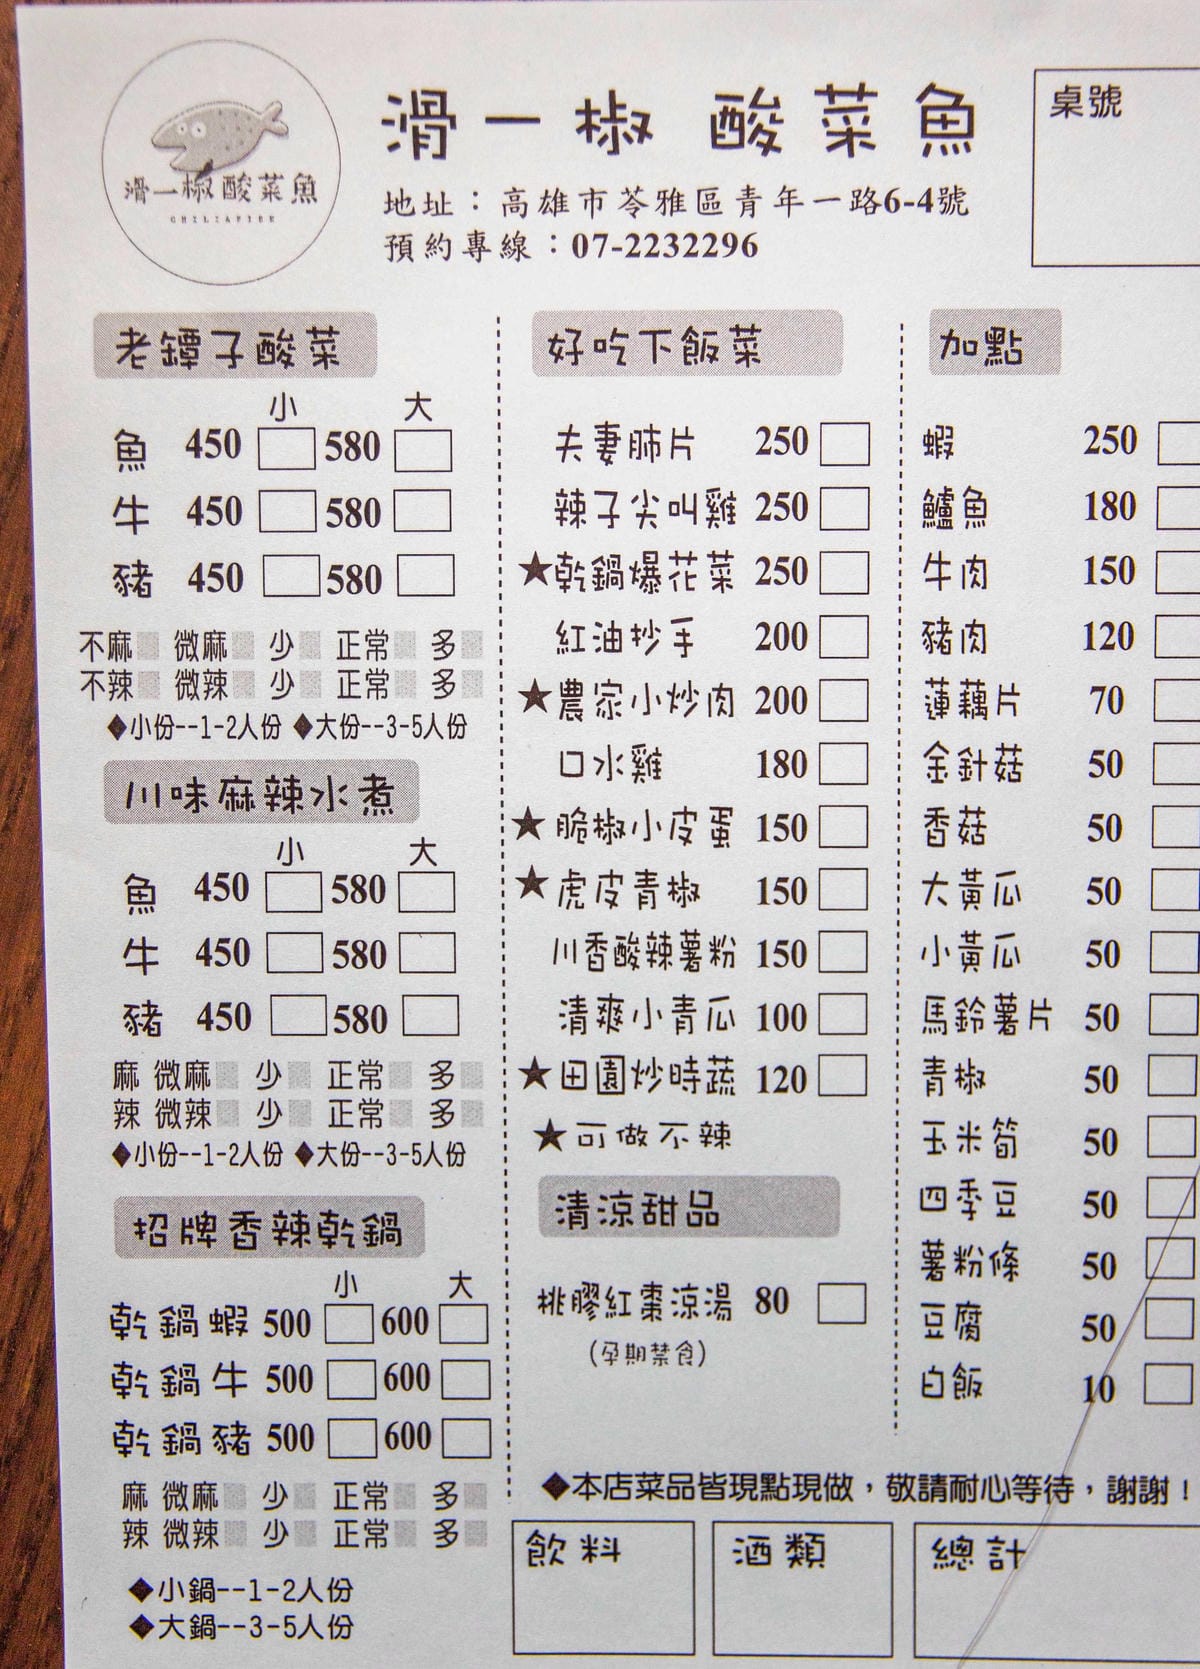 滑一椒酸菜魚
CHILIAFISH
滑一椒 酸菜魚
地址：高雄市苓雅區青年一路6-4號
預約專線：07-2232296
桌號
老罈子酸菜
小 大
魚 450 580
牛 450 580
豬 450 580
不麻 微麻 少 正常 多
不辣 微辣 少 正常 多
◆小份--1-2人份 ◆大份--3-5人份
川味麻辣水煮
小 大
魚 450 580
牛 450 580
豬 450 580
麻 微麻 少 正常 多
辣 微辣 少 正常 多
◆小份--1-2人份 ◆大份--3-5人份
招牌香辣乾鍋
小 大
乾鍋蝦 500 600
乾鍋牛 500 600
乾鍋豬 500 600
麻 微麻 少 正常 多
辣 微辣 少 正常 多
◆小鍋--1-2人份
◆大鍋--3-5人份
好吃下飯菜
夫妻肺片 250
辣子尖叫雞 250
★乾鍋爆花菜 250
紅油抄手 200
★農家小炒肉 200
口水雞 180
★脆椒小皮蛋 150
★虎皮青椒 150
川香酸辣薯粉 150
清爽小青瓜 100
★田園炒時蔬 120
★可做不辣
清涼甜品
桃膠紅棗涼湯 80
(孕期禁食)
加點
蝦 250
鱸魚 180
牛肉 150
豬肉 120
蓮藕片 70
金針菇 50
香菇 50
大黃瓜 50
小黃瓜 50
馬鈴薯片 50
青椒 50
玉米筍 50
四季豆 50
薯粉條 50
豆腐 50
白飯 10
◆本店菜品皆現點現做，敬請耐心等待，謝謝！
飲料
酒類
總計